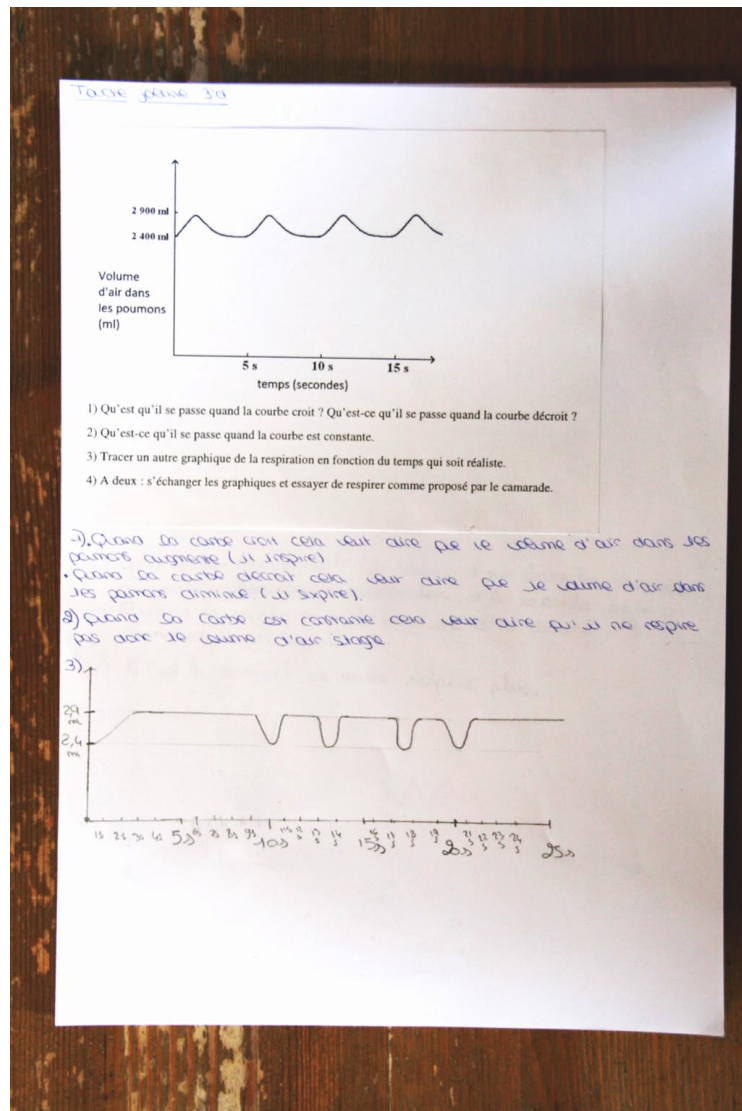 2 900 ml
2 400 ml
Volume
d'air dans
les poumons
(ml)
5 s 10 s 15 s
temps (secondes)
1) Qu'est qu'il se passe quand la courbe croit ? Qu'est-ce qu'il se passe quand la courbe décroit ?
2) Qu'est-ce qu'il se passe quand la courbe est constante.
3) Tracer un autre graphique de la respiration en fonction du temps qui soit réaliste.
4) A deux : s'échanger les graphiques et essayer de respirer comme proposé par le camarade.
1). Quand la carbe croit cela veut dire que le volume d'air dans les
pamons augmente (il inspire)
• Quand la carbe décroit cela veut dire que le volume d'air dans
les pamons diminue (il expire).
2) Quand la carbe est constante cela veut dire qu'il ne respire
pas donc le volume d'air stage
3)
2,9
2,4
1s 2s 3s 4s 5s 6s 7s 8s 9s 10s 11s 12s 13s 14s 15s 16s 17s 18s 19s 20s 21s 22s 23s 24s 25s